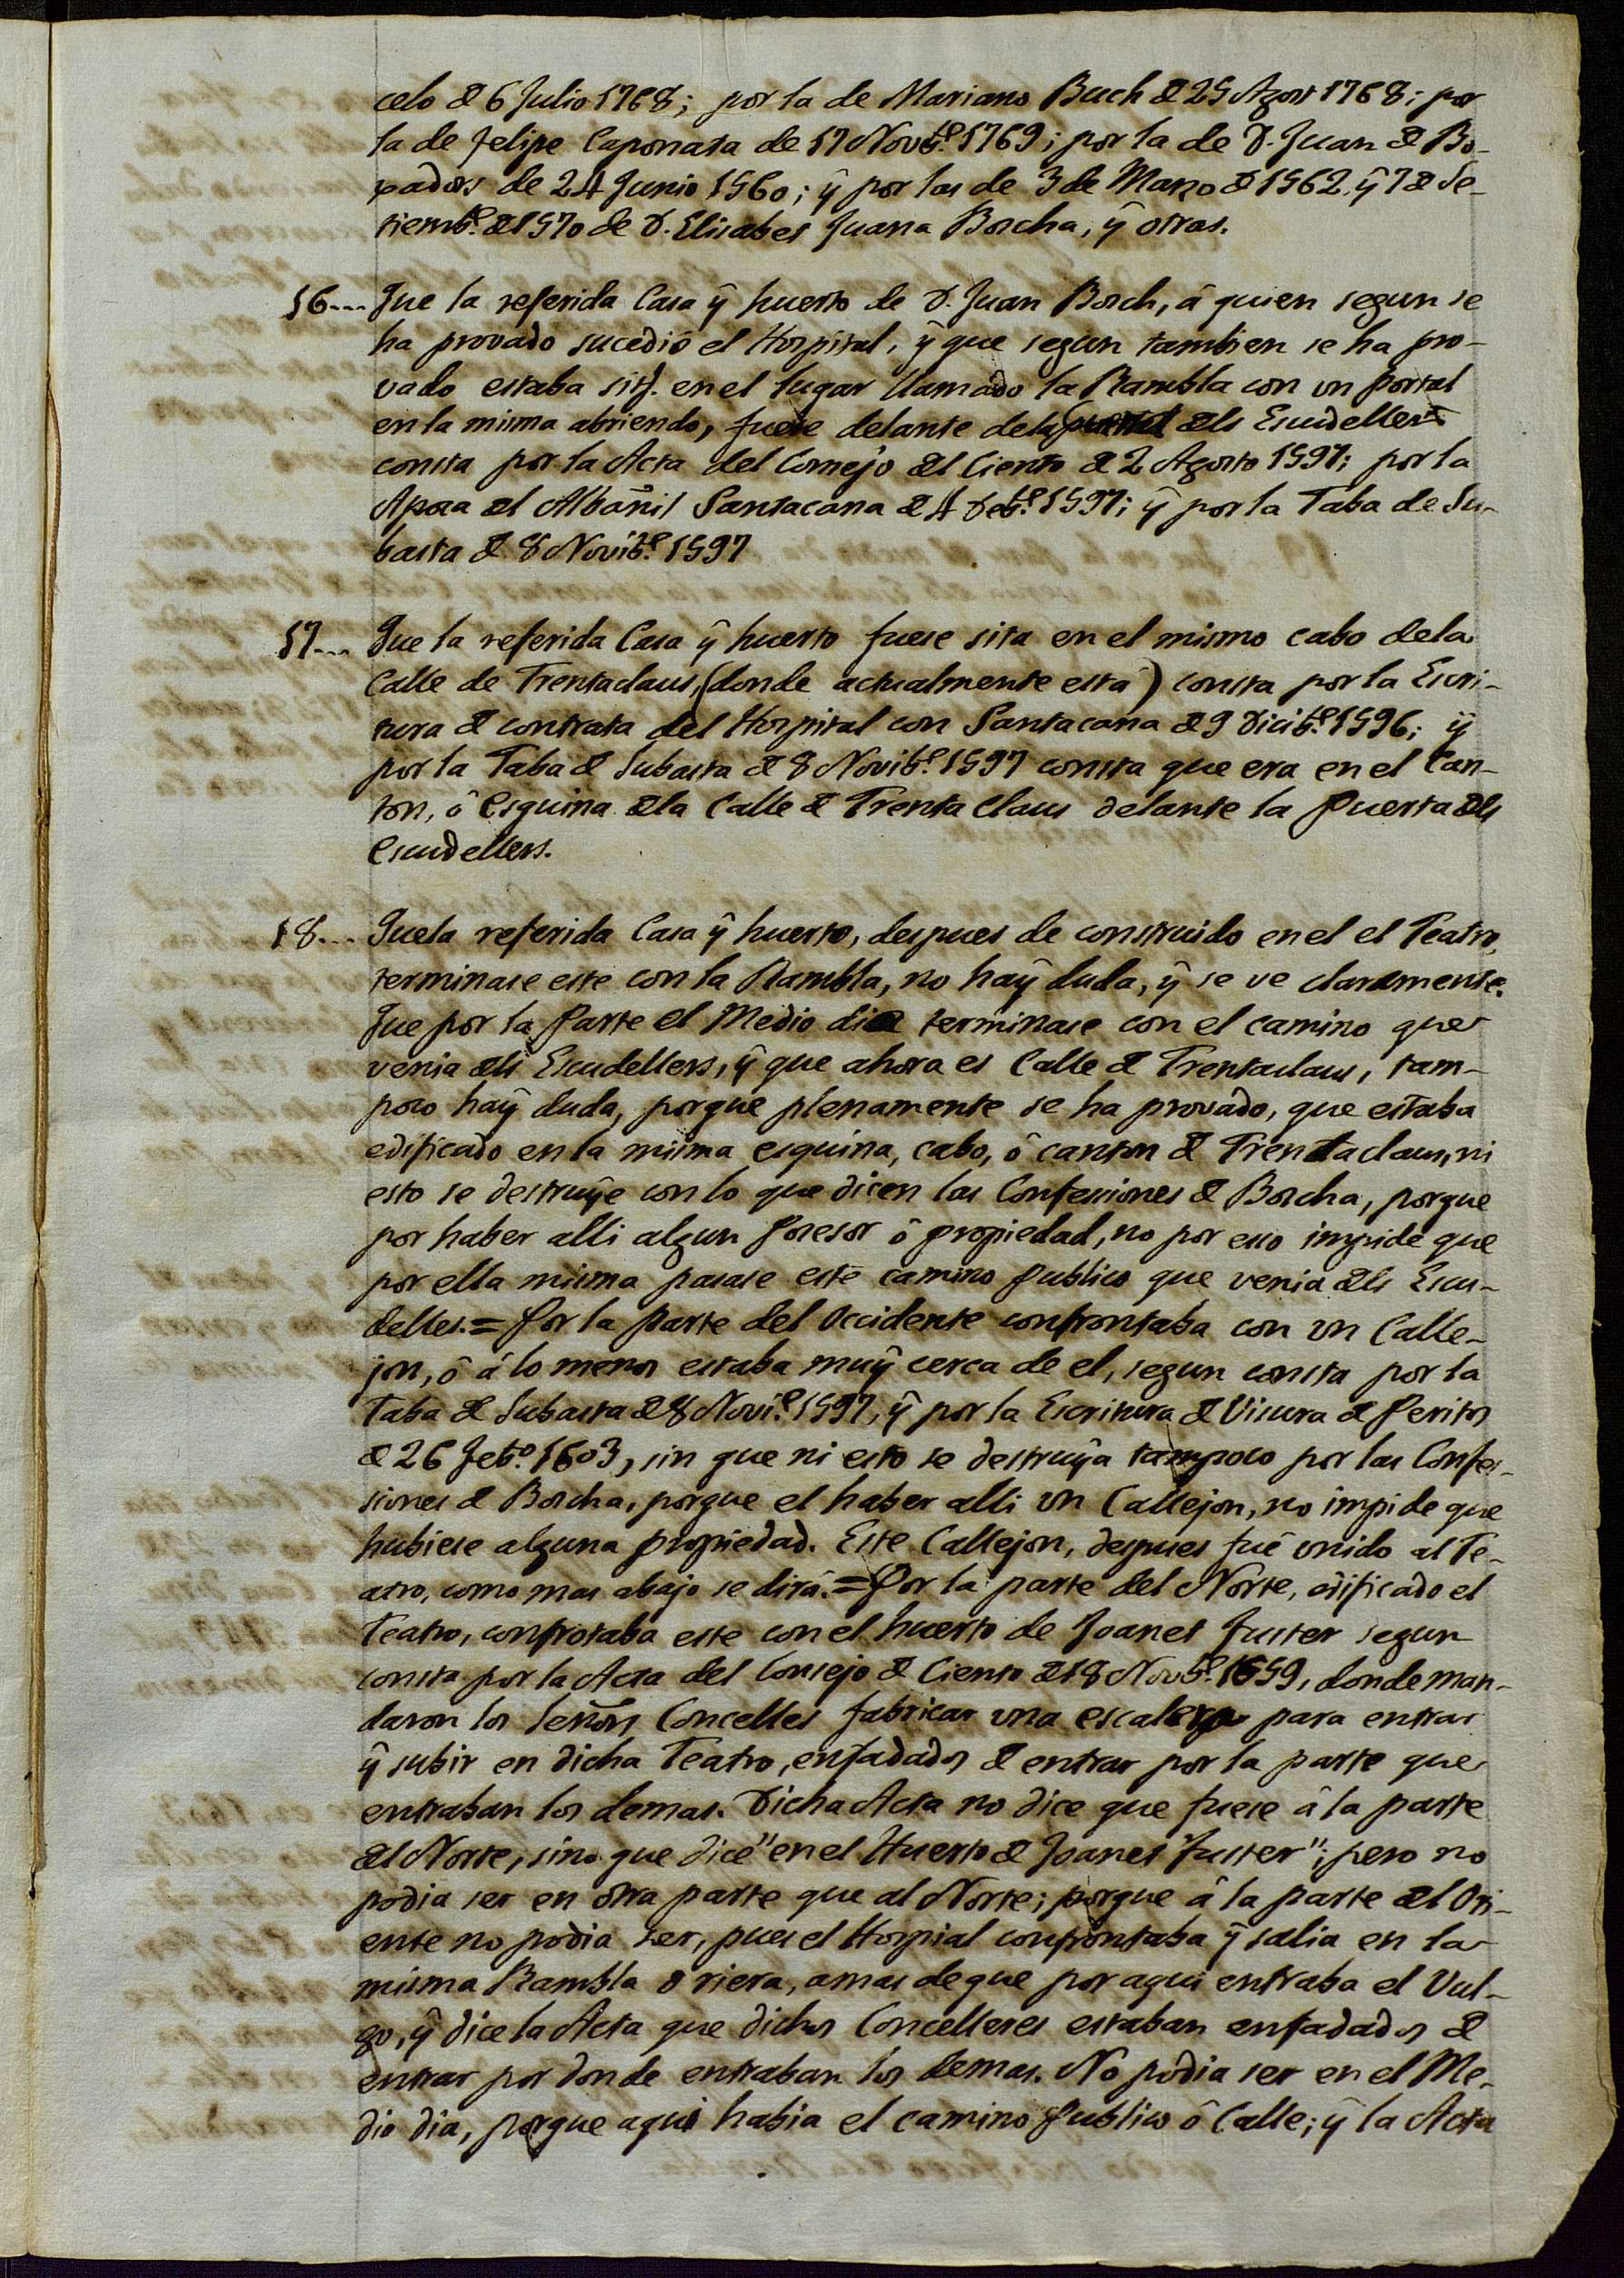 celo de 6 Julio 1768; por la de Mariano Buch de 25 Agost 1768; por
la de Felipe Caponata de 17 Novbe. 1769; por la de D. Juan de Bo-
xadors de 24 Junio 1560; ÿ por las de 3 de Marzo de 1562 ÿ 7 de Se-
tiembe. de 1570 de D. Elisabet Juana Boscha, ÿ otras.
16... Que la referida Casa ÿ huerto de D. Juan Bosch, â quien segun se
ha provado sucediô el Hospital, ÿ que segun tambien se ha pro-
vado estaba sitj. en el lugar llamado la Rambla con un portal
en la misma abriendo, fuese delante de la dels Escudellers
consta por la Acta del Consejo del Ciento de 2 Agosto 1597; por la
Apoca del Albañil Santacana de 4 Debe. 1597; ÿ por la Taba de Su-
basta de 8 Novibe. 1597
17... Que la referida Casa ÿ huerto fuese sita en el mismo cabo dela
Calle de Trentaclaus, (donde actualmente està) consta por la Escri-
tura de contrata del Hospital con Santacana de 9 Dicibe. 1596; ÿ
por la Taba de Subasta de 8 Novibe. 1597 consta que era en el Can-
ton, ô Esquina dela Calle de Trenta Claus delante la Puerta dels
Escudellers.
18... Quela referida Casa ÿ huerto, despues de construido en el el Teatro,
terminase este con la Rambla, no haÿ duda, ÿ se ve claramente.
Que por la Parte el Medio dia terminase con el camino que
venia dels Escudellers, ÿ que ahora es Calle de Trentaclaus, tam-
poco haÿ duda, porque plenamente se ha provado, que estaba
edificado en la misma esquina, cabo, ô canton de Trentaclaus, ni
esto se destruÿe con lo que dicen las Confessiones de Boscha, porque
por haber alli algun Posesor ô propiedad, no por esso impide que
por ella misma pasase este camino publico que venia dels Escu-
delles. = Por la parte del Occidente confrontaba con un Calle-
jon, ô â lo menos estaba muÿ cerca de el, segun consta por la
Taba de Subasta de 8 Novi.e 1597, ÿ por la Escritura de Visura de Peritos
de 26 Febo. 1603, sin que ni esto se destruÿa tampoco por las Confes-
siones de Boscha, porque el haber alli un Callejon, no impide que
hubiese alguna propiedad. Este Callejon, despues fuê unido al Te-
atro, como mas abajo se dirâ. = Por la parte del Norte, edificado el
Teatro, confrotaba este con el huerto de Joanet Fuster segun
consta por la Acta del Consejo de Ciento de 18 Novbe. 1659, donde man-
daron los señors Concelles fabricar una escalera para entrar
ÿ subir en dicha Teatro, enfadados de entrar por la parte que
entraban los demas. Dicha Acta no dice que fuese â la parte
del Norte, sino que dice "en el Huerto de Joanet Fuster"; pero no
podia ser en otra parte que al Norte; porque â la parte del Ori-
ente no podia ser, pues el Hospial confrontaba ÿ salia en la
misma Rambla o riera, amas de que por aqui entraba el Vul-
go, ÿ dice la Acta que dichos Concelleres estaban enfadados de
entrar por donde entraban los demas. No podia ser en el Me-
dio dia, porque aqui habia el camino Publico ô Calle; ÿ la Acta